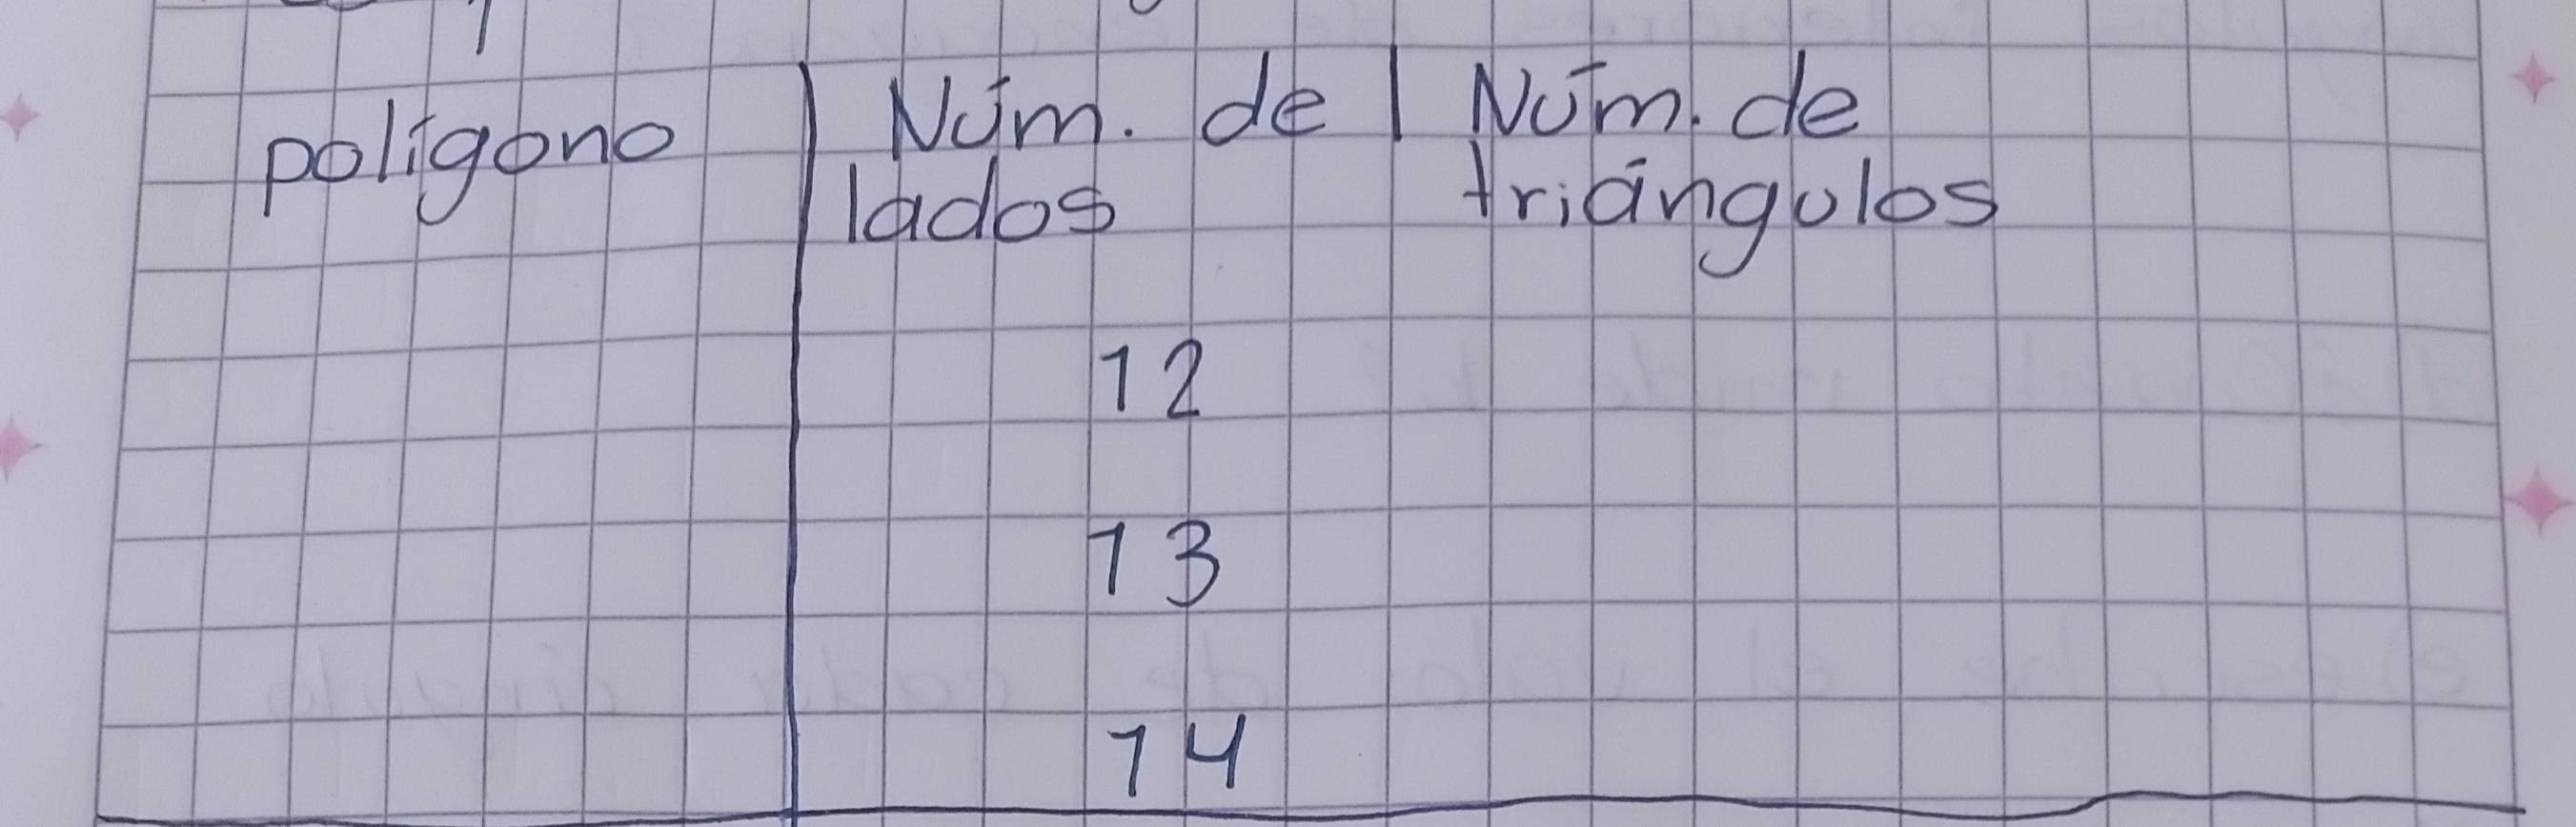 polígono | Núm. de | Núm. de
lados triángulos
12
13
14